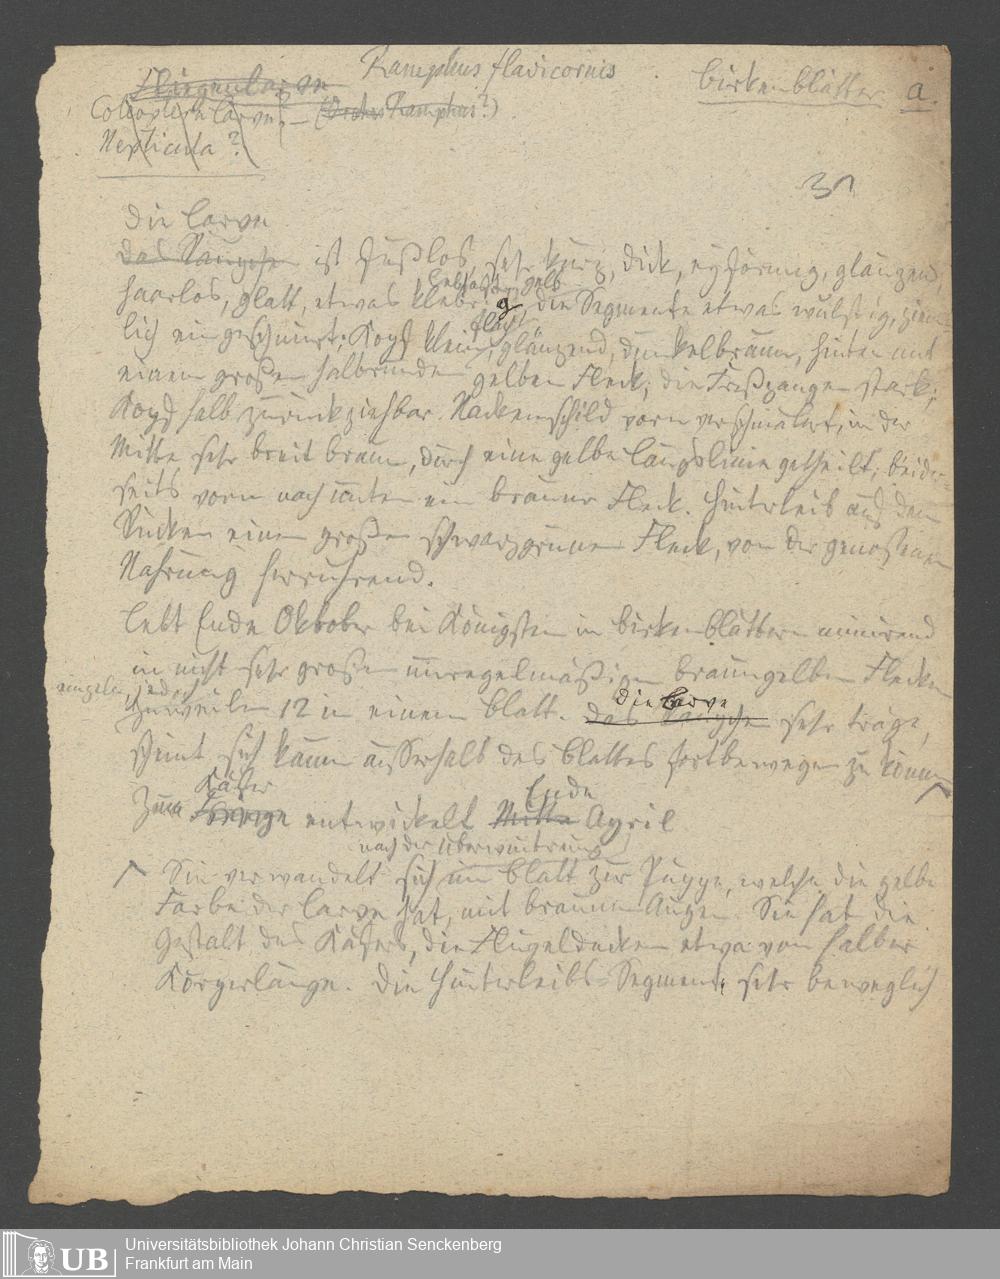 Fliegenlarve Ramphus flavicornis Birkenblätter a.
Coleoptern Larve? – (Orchestes Ramphus?)
Nepticula?
31
Die Larve
das Räupchen ist fußlos, sehr kurz, dick, eyförmig, glänzend,
lebhaft gelb
haarlos, glatt, etwas klebrig, die Segmente etwas wulstig, ziem-
flach
lich eingeschnürt; Kopf klein, glänzend, dunkelbraun, hinten mit
einem großen halbrunden gelben Fleck; die Freßzangen stark;
Kopf halb zurückziehbar. Nackenschild vorn verschmälert, in der
Mitte sehr breit braun, durch eine gelbe Längslinie getheilt; beider-
seits vorn nach unten ein brauner Fleck. Hinterleib auf dem
Rücken einen großen schwarzgrünen Fleck, von der genossenen
Nahrung herrührend.
Lebt Ende Oktober bei Königstein in Birkenblättern minirend
in nicht sehr großen unregelmäßigen braungelben Flecken
einzeln, jedoch
zuweilen 12 in einem Blatt. Die Larve
das Räupchen sehr träge,
scheint sich kaum ausserhalb des Blattes fortbewegen zu können
Käfer Ende
Zum Fliege entwickelt Mitte April
nach der Überwinterung
Sie verwandelt sich im Blatt zur Puppe, welche die gelbe
Farbe der Larve hat, mit braunen Augen. Sie hat die
Gestalt des Käfers, die Flügeldecken etwa von halber
Körperlänge. Die Hinterleibs-Segmente sehr beweglich
UB Universitätsbibliothek Johann Christian Senckenberg
Frankfurt am Main